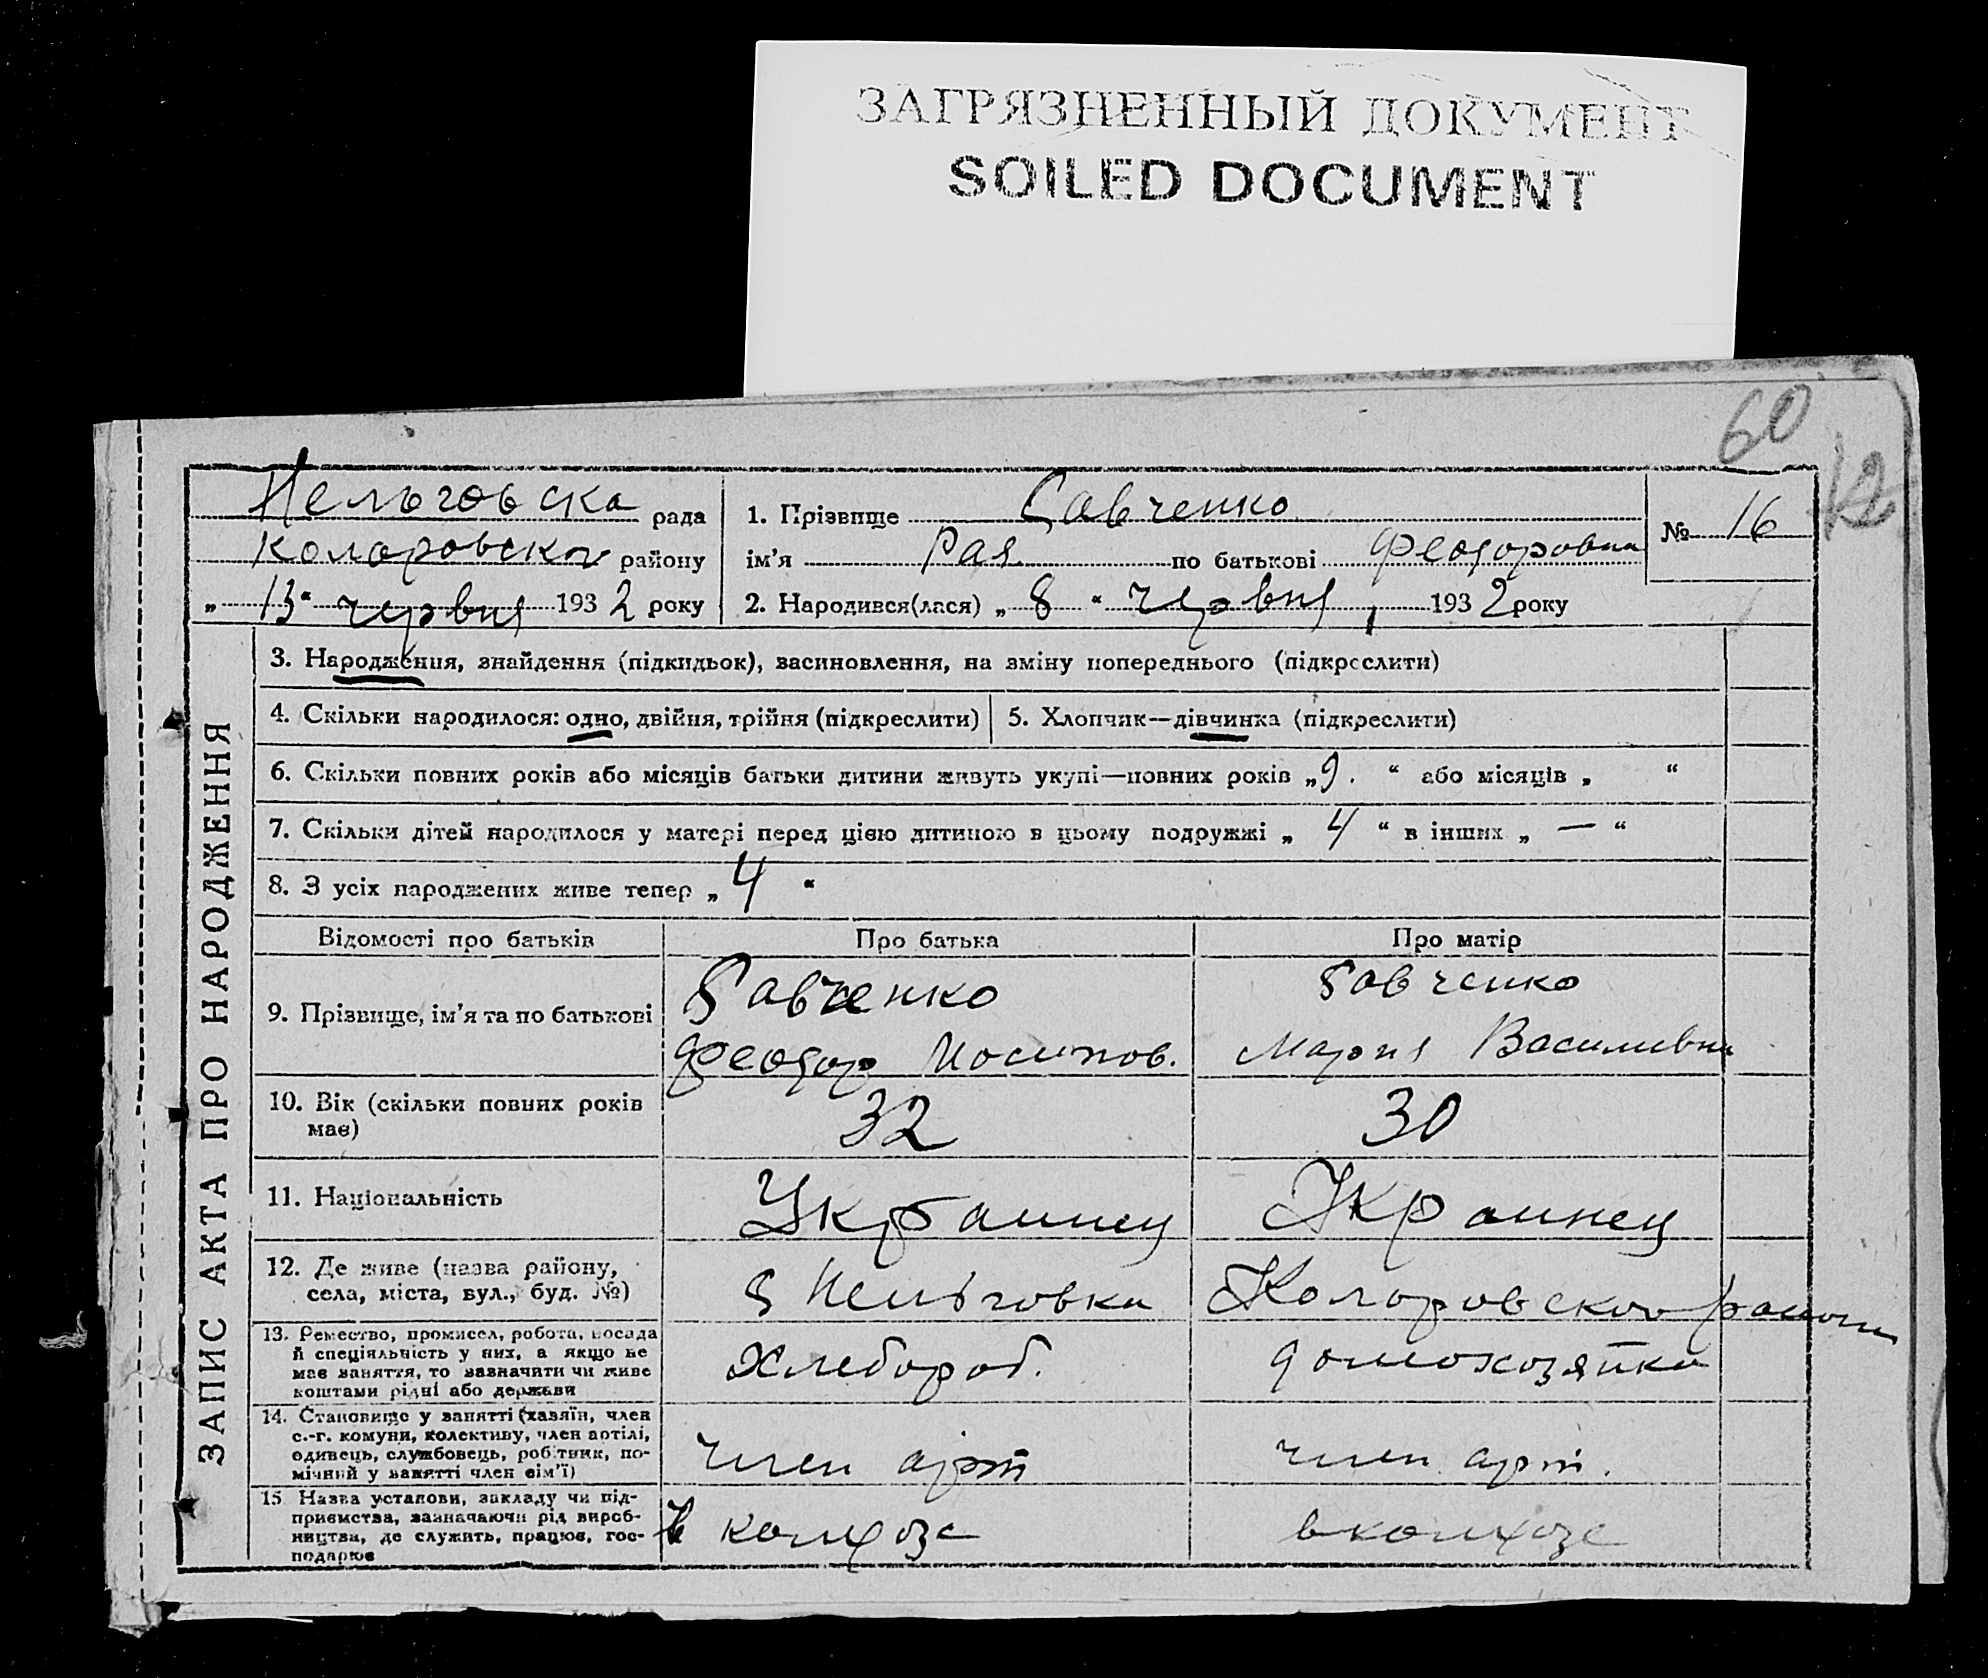 ЗАГРЯЗНЕННЫЙ ДОКУМЕНТ
SOILED DOCUMENT
60
12
Нельговска рада
Коларовского району
„ 13 “ червня 1932 року
1. Прізвище Савченко
ім’я Рая по батькові Феодоровна
2. Народився(лася) „ 8 “ червня 1932 року
№ 16
ЗАПИС АКТА ПРО НАРОДЖЕННЯ
3. Народження, знайдення (підкидьок), засиновлення, на зміну попереднього (підкреслити)
4. Скільки народилося: одно, двійня, трійня (підкреслити)
5. Хлопчик—дівчинка (підкреслити)
6. Скільки повних років або місяців батьки дитини живуть укупі—повних років „ 9. “ або місяців „ “
7. Скільки дітей народилося у матері перед цією дитиною в цьому подружжі „ 4 “ в інших „ — “
8. З усіх народжених живе тепер „ 4 “
Відомості про батьків
Про батька
Про матір
9. Прізвище, ім’я та по батькові
Савченко
Феодор Иосипов.
Савченко
Мария Василивна
10. Вік (скільки повних років
має)
32
30
11. Національність
Украинец
Украинец
12. Де живе (назва району,
села, міста, вул., буд. №)
с Нельговка
Коларовского району
13. Ремество, промисел, робота, посада
й спеціяльність у них, а якщо не
має заняття, то зазначити чи живе
коштами рідні або держави
Хлебороб.
домохозяйка
14. Становище у занятті (хазяїн, член
с.-г. комуни, колективу, член артілі,
одивець, службовець, робітник, по-
мічний у занятті член сім’ї)
член арт
член арт.
15 Назва установи, закладу чи під-
приємства, зазначаючи рід вироб-
ництва, де служить, працює, гос-
подарює
в колхозе
в колхозе